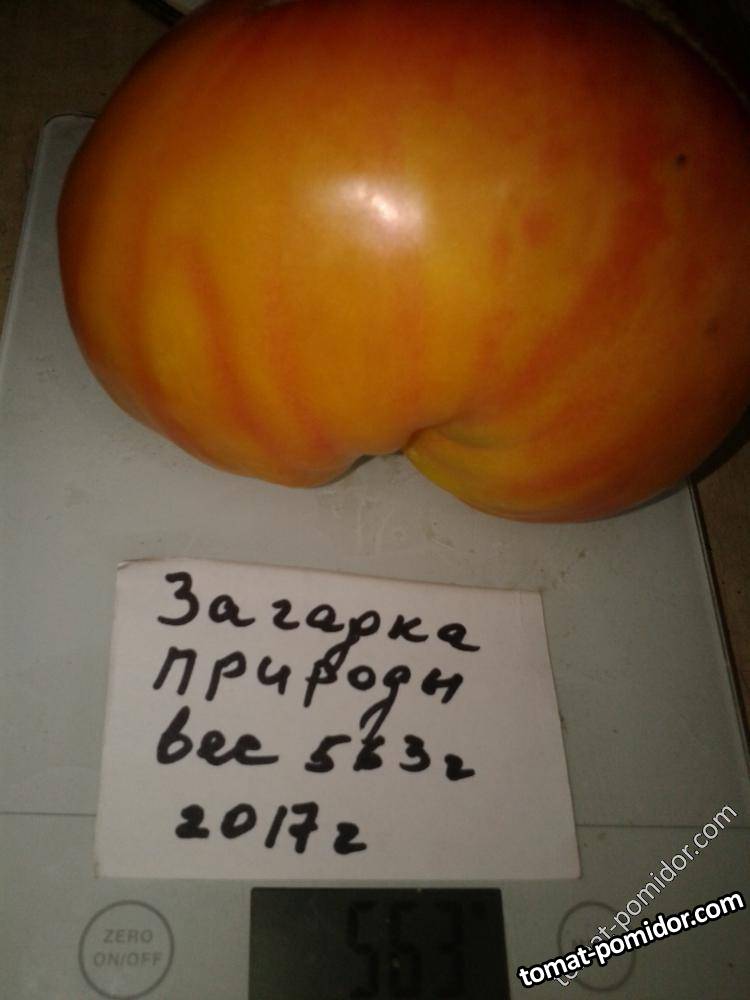 Загадка
природы
вес 563г
2017г
ZERO
ON/OFF
563
tomat-pomidor.com
tomat-pomidor.com